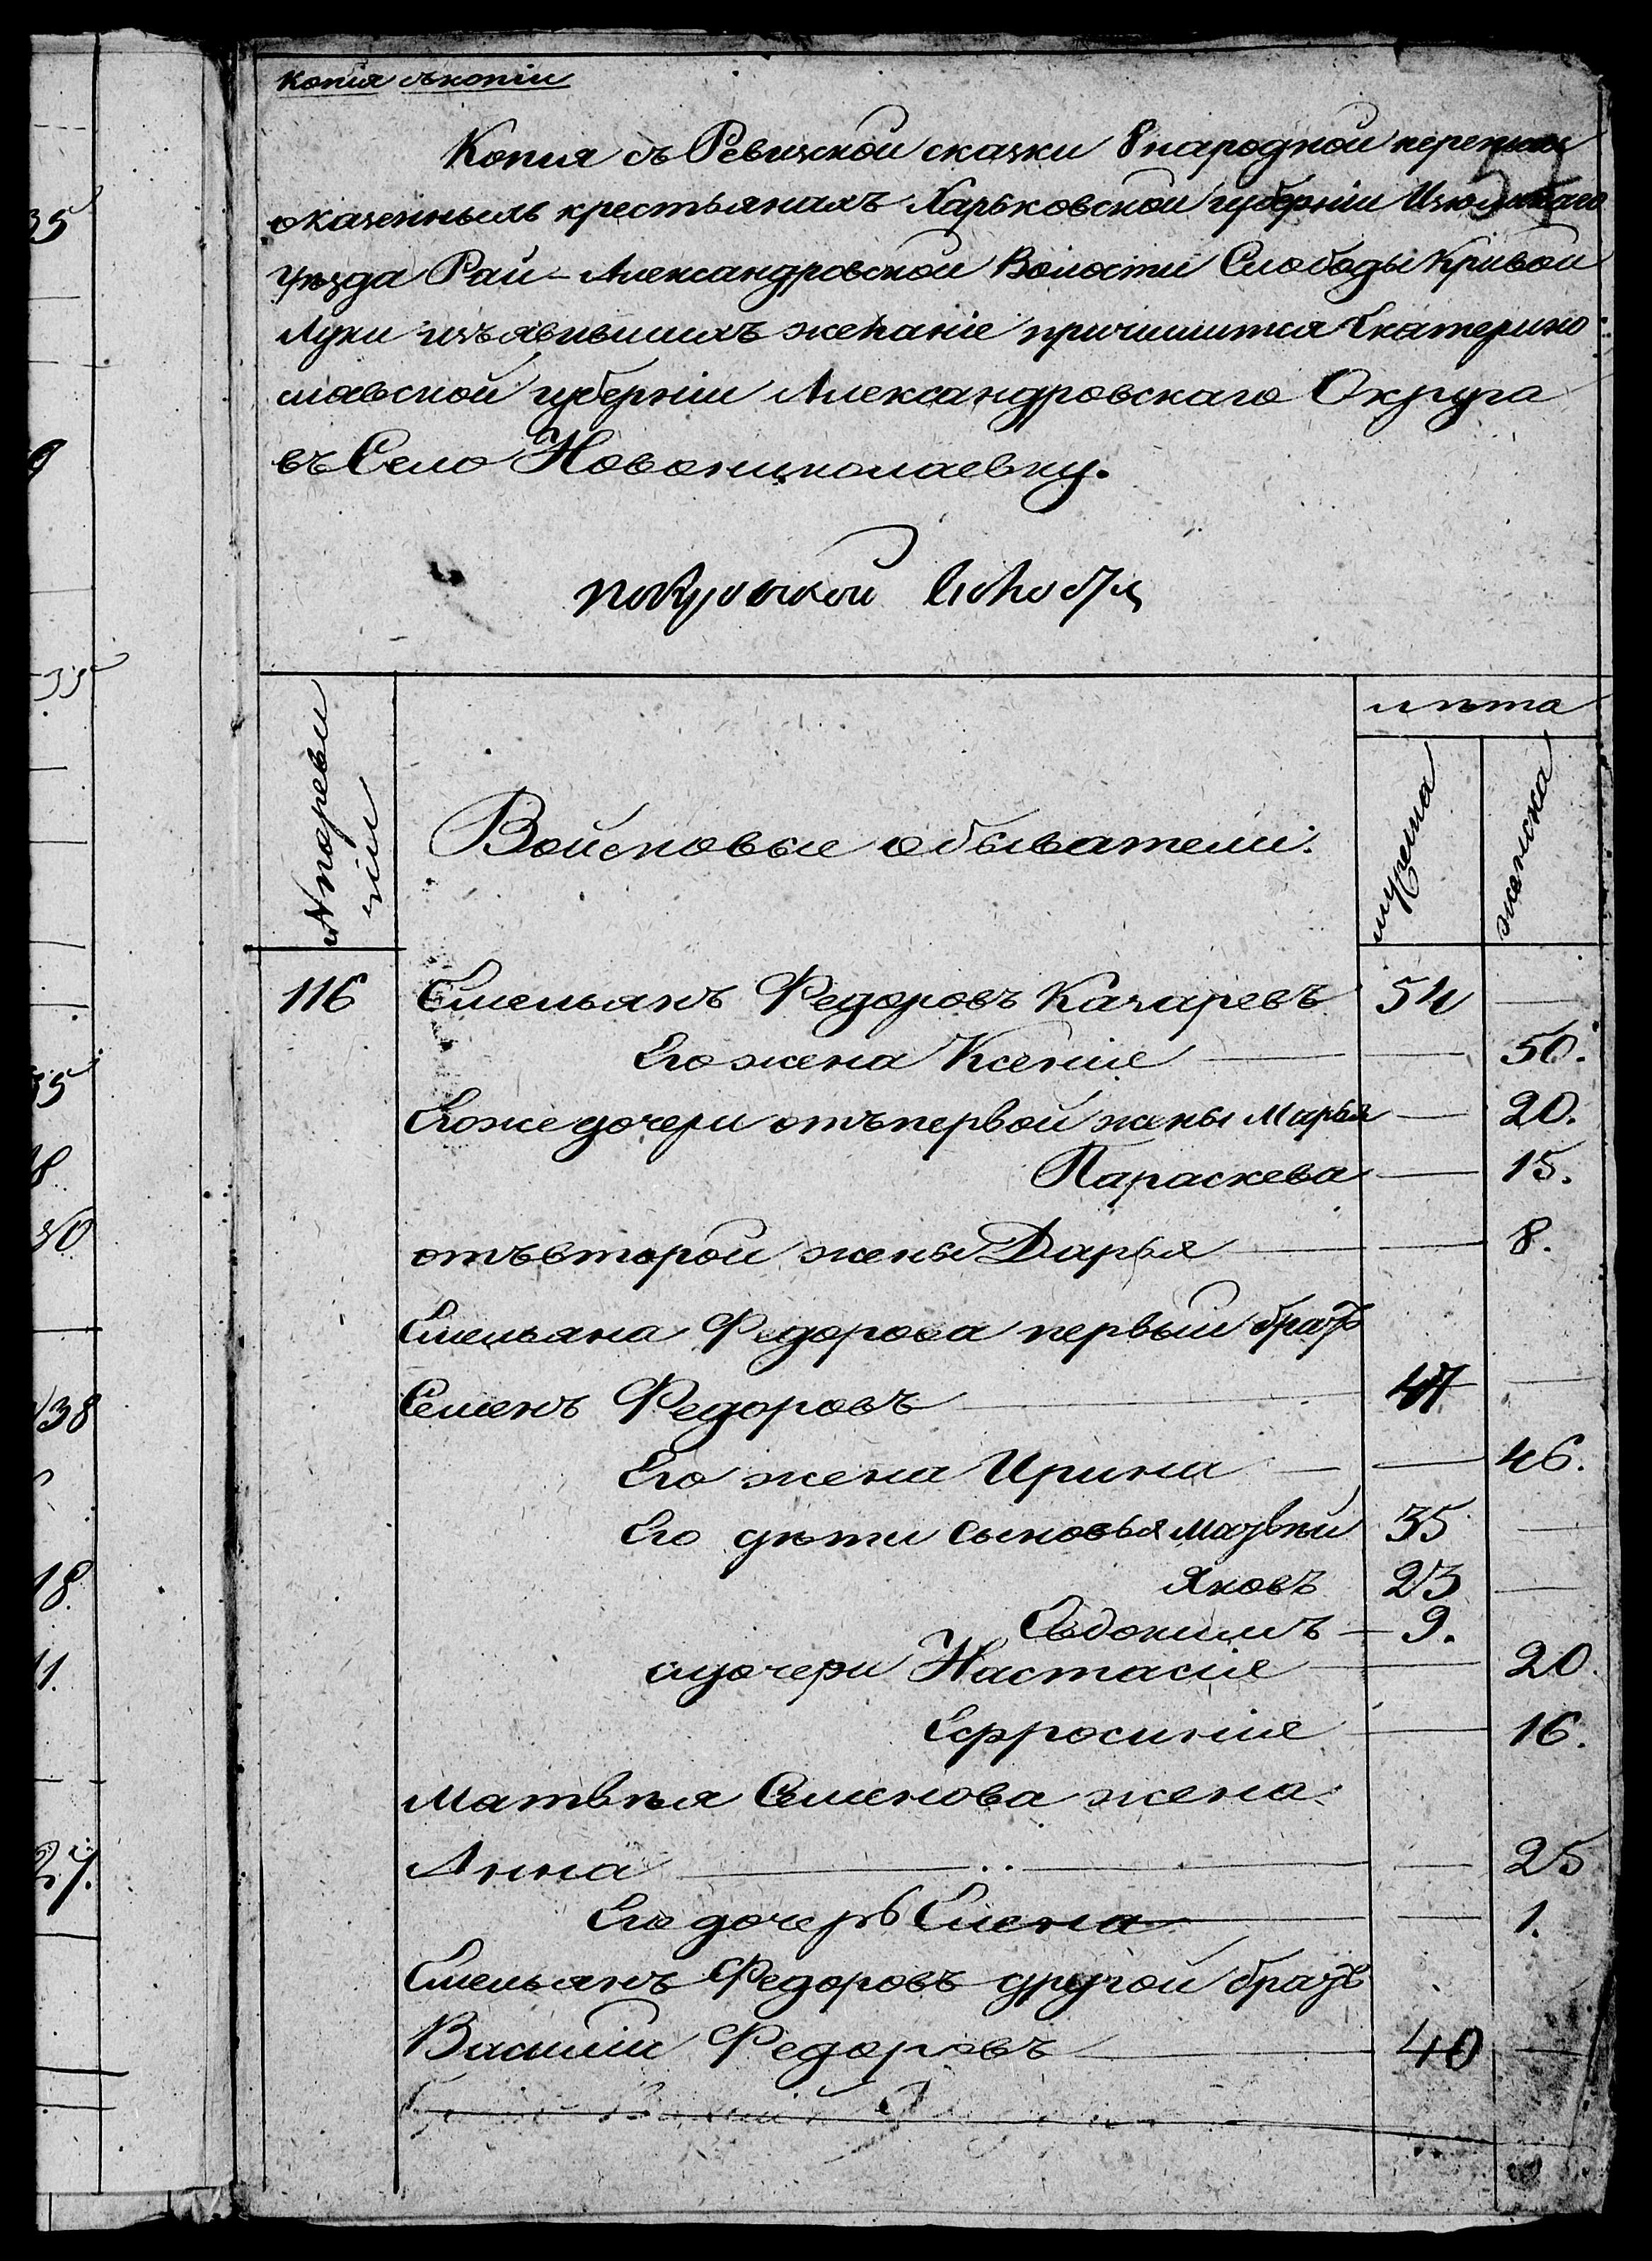 35
9
35
35
18
30
38
18
11.
27.
Копия съкопіи
Копия съ Ревизкой сказки 8 народной переписи
оказенныхъ крестьянахъ Харьковской губерніи Изюмскаго
уѣзда Рай-Александровской Волости Слободы Кривой
Луки изъявившихъ желаніе причислится Екатерино
славской губерніи Александровскаго Округа
въ Село Новониколаевку.
№ поревизіи
Войсковые обыватели.
лѣта
мужеска
женска
116 Емельянъ Федоровъ Качаревъ 54 —
Его жена Ксенія — — 50.
Егоже дочери отъпервой жены Марья — 20.
Параскева — 15.
отъвторой жены Дарья — — 8.
Емельяна Федорова первый братъ
Семенъ Федоровъ — 47 —
Его жена Ирина — — 46.
Его дѣти сыновья Матвѣй 35 —
Яковъ 23 —
Евдокимъ — 9.
идочери Настасія — 20.
Ефросинія — 16.
Матвѣя Семенова жена
Анна — — 25
Его дочерь Елена — — 1.
Емельянъ Федоровъ другой братъ
Василій Федоровъ — 40 —